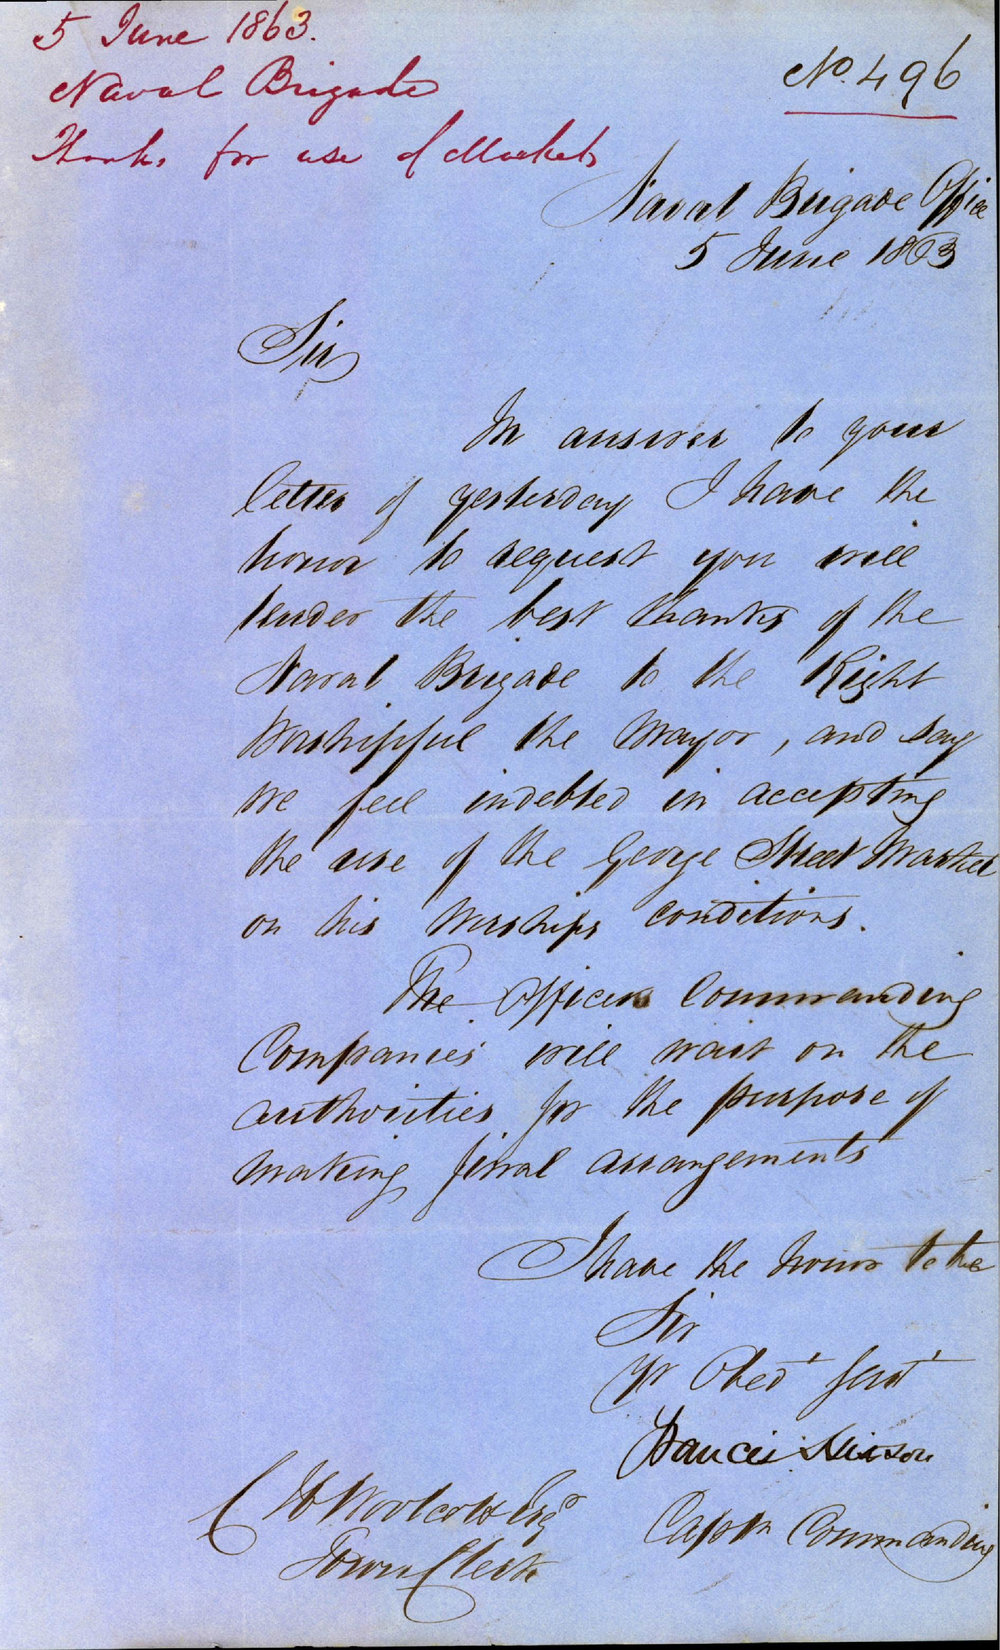 5 June 1863.
Naval Brigade
Thanks for use of Markets
No. 496
Naval Brigade Office
5 June 1863
Sir
In answer to your
letter of yesterday I have the
honor to request you will
tender the best thanks of the
Naval Brigade to the Right
Worshipful the Mayor, and say
we feel indebted in accepting
the use of the George Street Market
on his Worships conditions.
The Officers Commanding
Companies will wait on the
authorities for the purpose of
making final arrangements
I have the honor to be
Sir
Yr Obedt Servt
Francis Hixson
Captn Commanding
C H Woolcott Esqr
Town Clerk